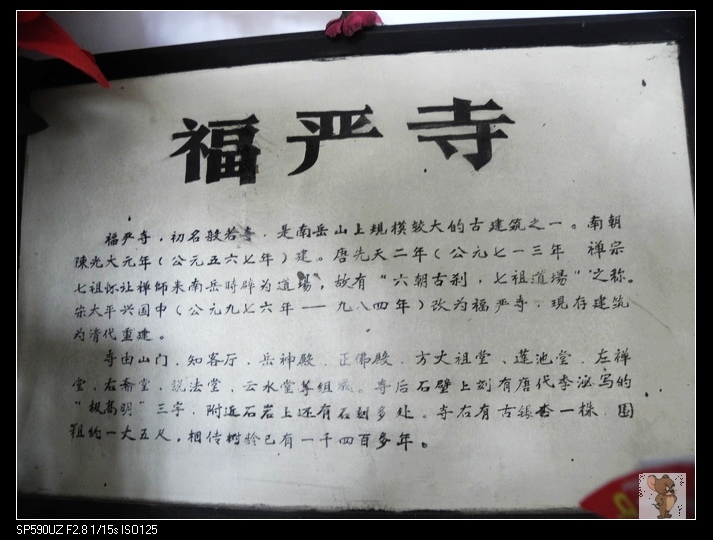 福严寺
福严寺，初名般若寺，是南岳山上规模较大的古建筑之一。南朝
陳光大元年（公元五六七年）建。唐先天二年（公元七一三年 禅宗
七祖怀让禅师来南岳時辟为道場，故有“六朝古刹，七祖道場”之称。
宋太平兴国中（公元九七六年——九八四年）改为福严寺，现存建筑
为清代重建。
寺由山门、知客厅、岳神殿、正佛殿、方丈祖堂、莲池堂、左禅
堂、右斋堂、说法堂、云水堂等组成。寺后石壁上刻有唐代李泌写的
“极高明”三字，附近石岩上还有石刻多处。寺右有古银杏一株，围
粗约一丈五尺，相传树龄已有一千四百多年。
SP590UZ F2.8 1/15s ISO125